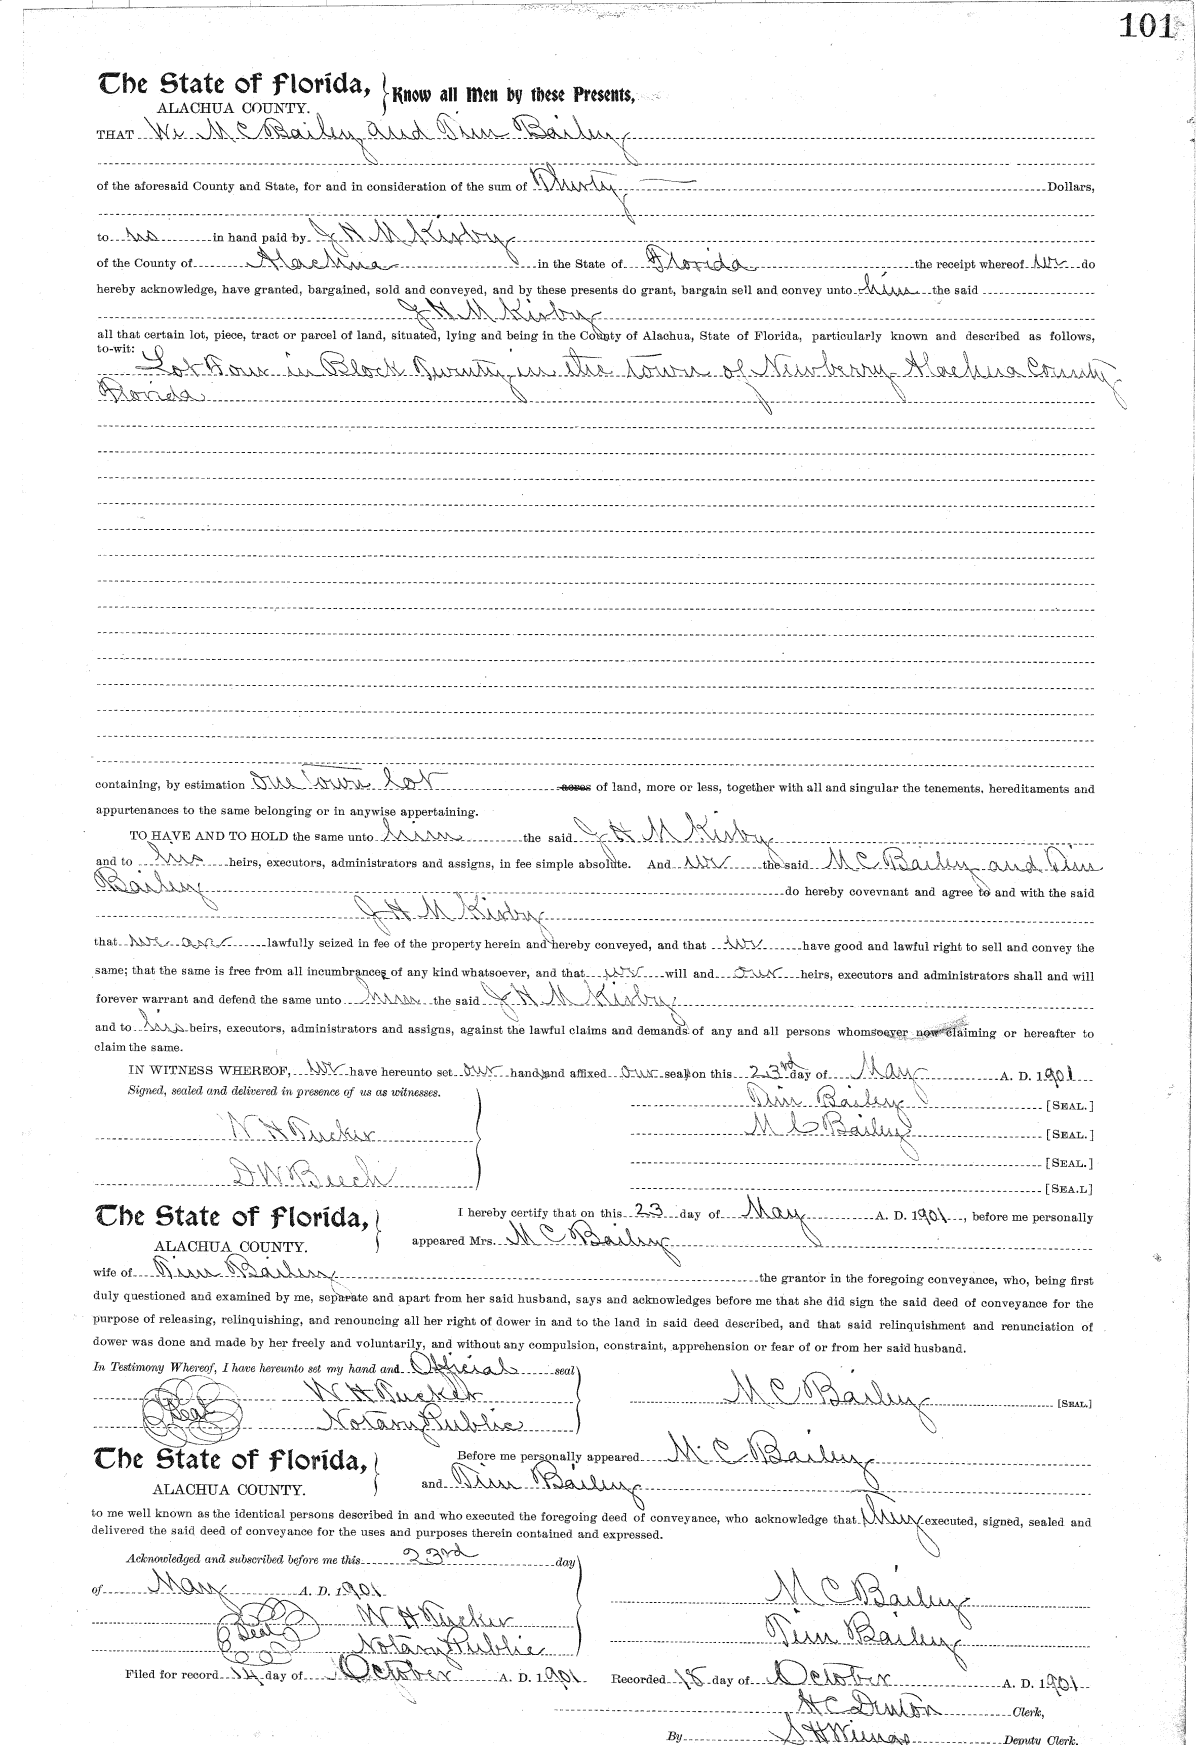 101
The State of Florida, Know all Men by these Presents,
ALACHUA COUNTY.
THAT We M C Bailey and Tim Bailey
of the aforesaid County and State, for and in consideration of the sum of Thirty Dollars,
to us in hand paid by J H M Kirby
of the County of Alachua in the State of Florida the receipt whereof we do
hereby acknowledge, have granted, bargained, sold and conveyed, and by these presents do grant, bargain sell and convey unto him the said
J H M Kirby
all that certain lot, piece, tract or parcel of land, situated, lying and being in the County of Alachua, State of Florida, particularly known and described as follows,
to-wit: Lot Four in Block Twenty in the town of Newberry Alachua County
Florida
containing, by estimation one town lot acres of land, more or less, together with all and singular the tenements, hereditaments and
appurtenances to the same belonging or in anywise appertaining.
TO HAVE AND TO HOLD the same unto him the said J H M Kirby
and to his heirs, executors, administrators and assigns, in fee simple absolute. And we the said M C Bailey and Tim
Bailey do hereby covevnant and agree to and with the said
J H M Kirby
that we are lawfully seized in fee of the property herein and hereby conveyed, and that we have good and lawful right to sell and convey the
same; that the same is free from all incumbrances of any kind whatsoever, and that we will and our heirs, executors and administrators shall and will
forever warrant and defend the same unto him the said J H M Kirby
and to his heirs, executors, administrators and assigns, against the lawful claims and demands of any and all persons whomsoever now claiming or hereafter to
claim the same.
IN WITNESS WHEREOF, we have hereunto set our hands and affixed our seals on this 23rd day of May A. D. 1901
Signed, sealed and delivered in presence of us as witnesses. Tim Bailey [SEAL.]
W H Tucker M C Bailey [SEAL.]
[SEAL.]
D W Beech [SEA.L]
The State of Florida, I hereby certify that on this 23 day of May A. D. 1901, before me personally
ALACHUA COUNTY. appeared Mrs. M C Bailey
wife of Tim Bailey the grantor in the foregoing conveyance, who, being first
duly questioned and examined by me, separate and apart from her said husband, says and acknowledges before me that she did sign the said deed of conveyance for the
purpose of releasing, relinquishing, and renouncing all her right of dower in and to the land in said deed described, and that said relinquishment and renunciation of
dower was done and made by her freely and voluntarily, and without any compulsion, constraint, apprehension or fear of or from her said husband.
In Testimony Whereof, I have hereunto set my hand and Official seal
W H Tucker M C Bailey [SEAL.]
Seal Notary Public
The State of Florida, Before me personally appeared M. C Bailey
ALACHUA COUNTY. and Tim Bailey
to me well known as the identical persons described in and who executed the foregoing deed of conveyance, who acknowledge that they executed, signed, sealed and
delivered the said deed of conveyance for the uses and purposes therein contained and expressed.
Acknowledged and subscribed before me this 23rd day
of May A. D. 1901 M C Bailey
W H Tucker
Seal Tim Bailey
Notary Public
Filed for record 14 day of October A. D. 1901 Recorded 18 day of October A. D. 1901
H C Denton Clerk,
By S H Wienges Deputy Clerk.